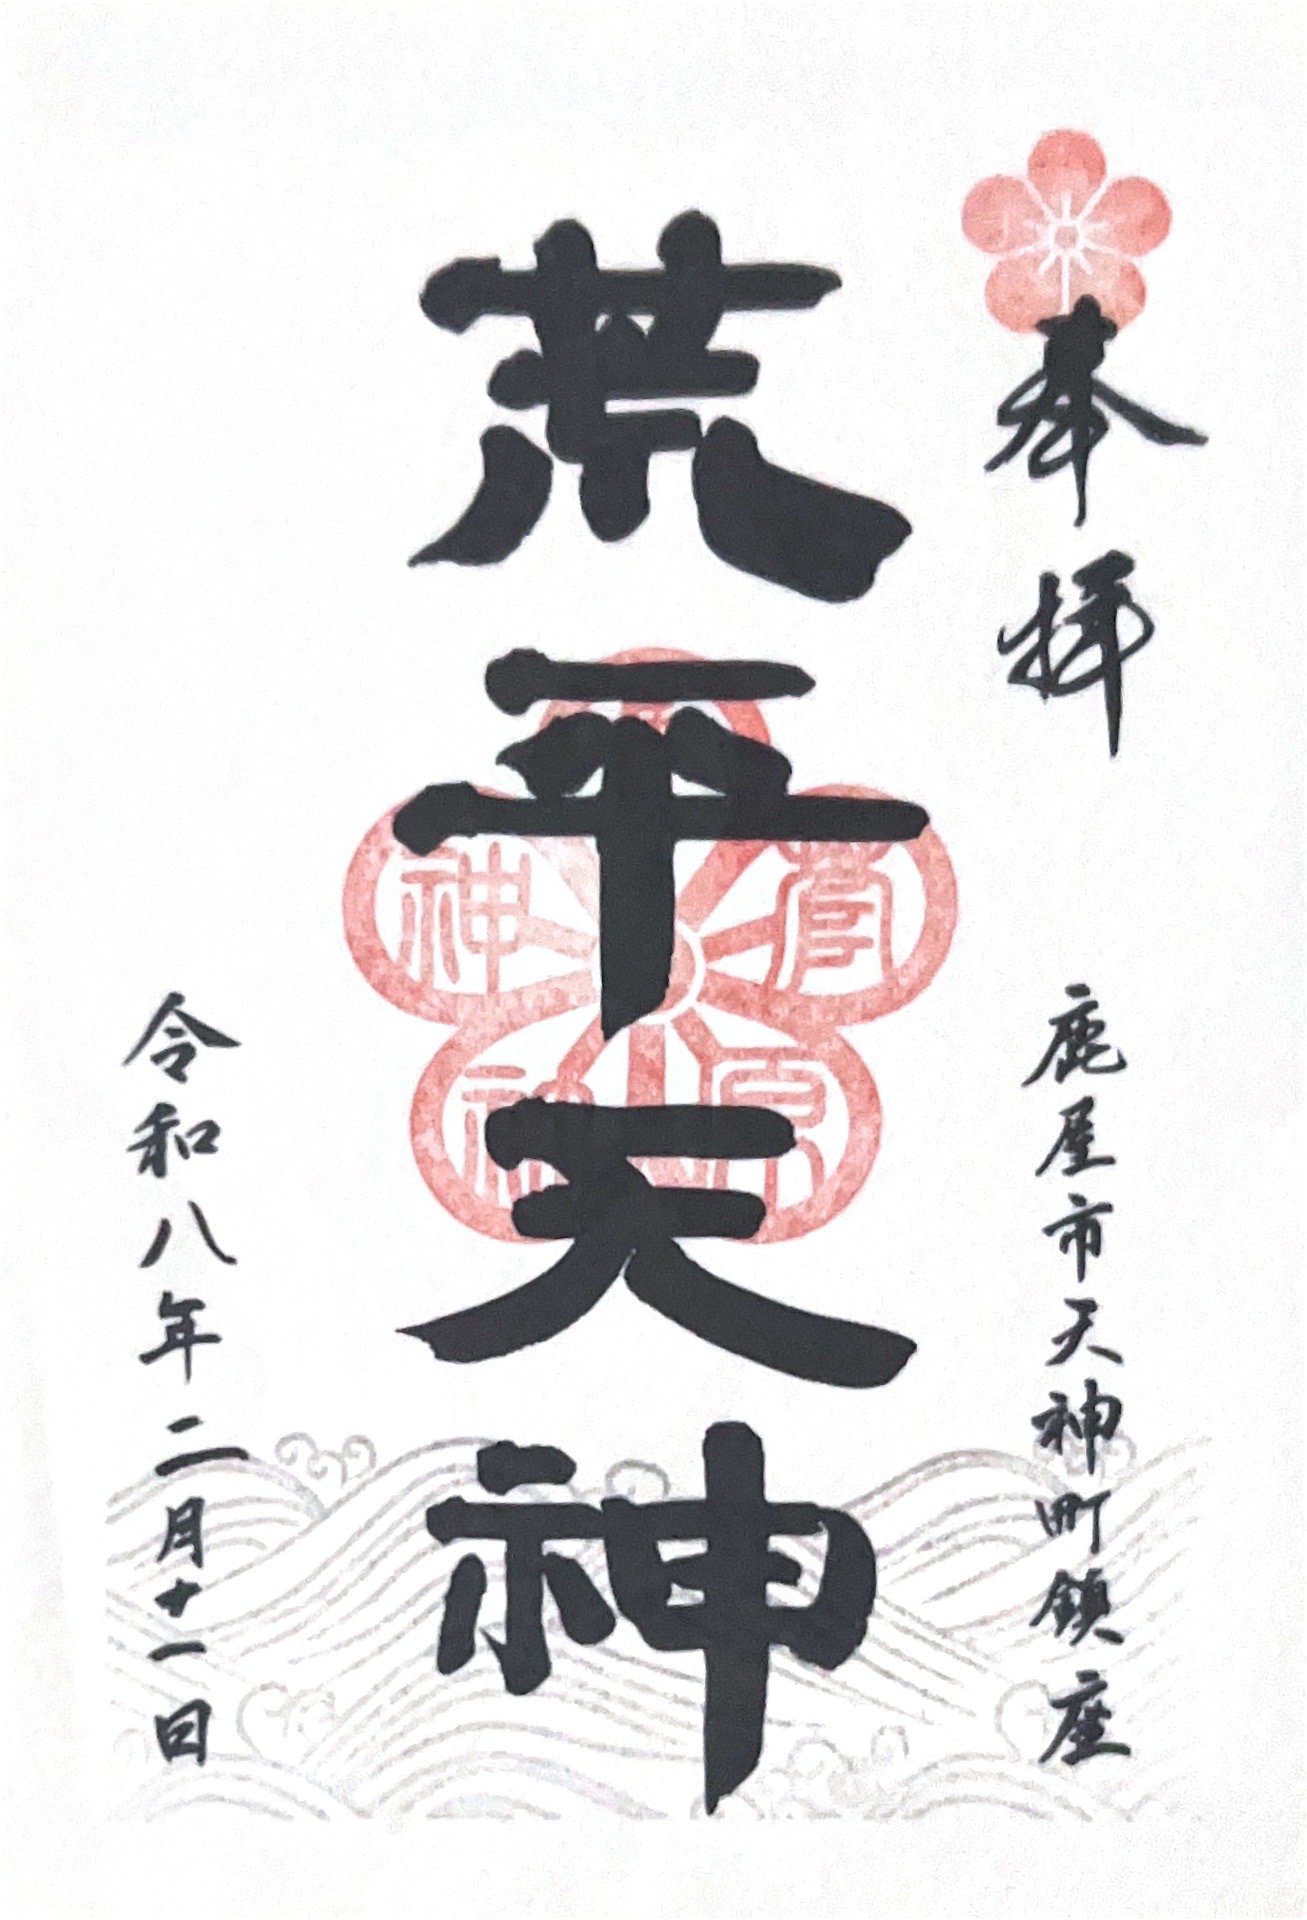 奉拝
鹿屋市天神町鎮座
荒平天神
菅原神社
令和八年二月十一日